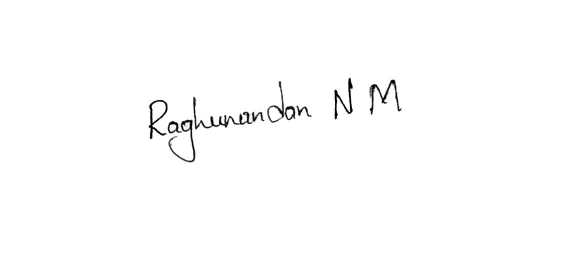 Raghunandan N M